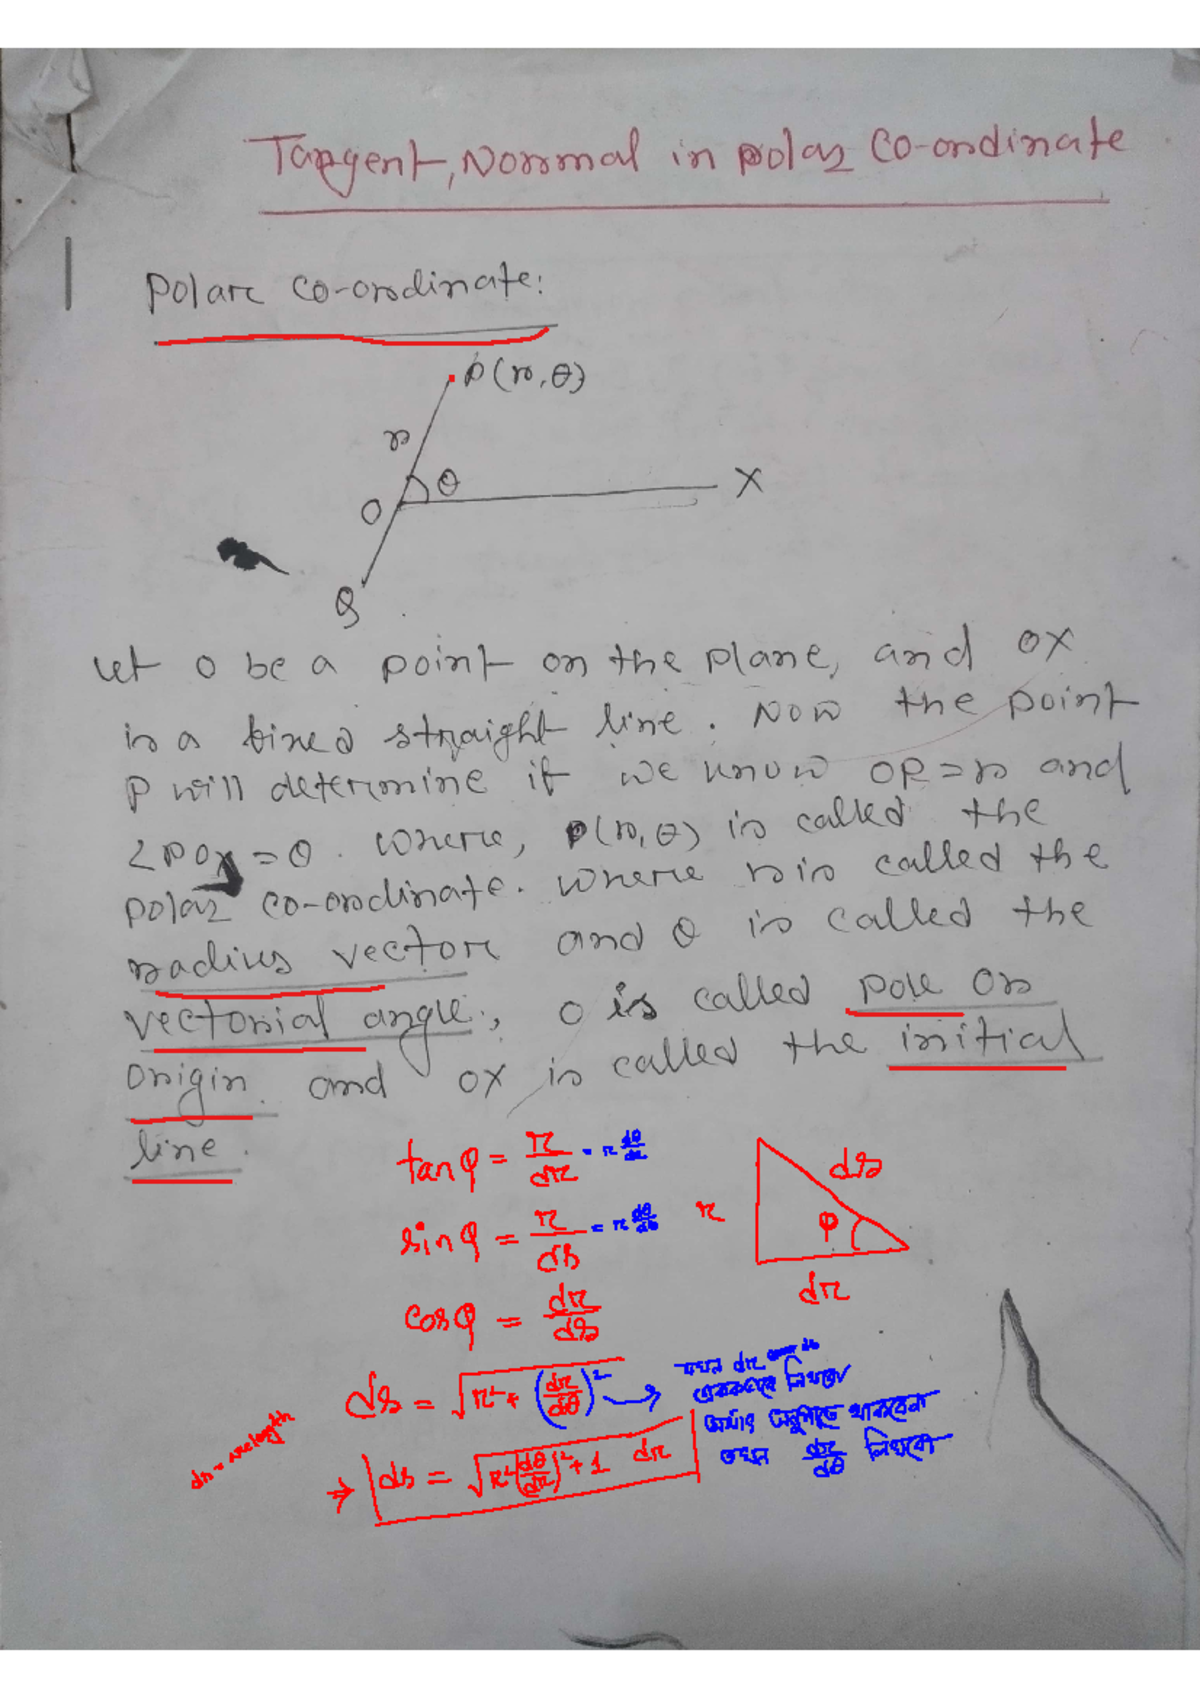 Tangent, Normal in polar Co-ordinate
Polar co-ordinate:
P(r, θ)
r
θ
O
X
Q
Let O be a point on the plane, and OX
is a fixed straight line. Now the point
P will determine if we know OP = r and
∠POX = θ. Where, P(r, θ) is called the
polar co-ordinate. Where r is called the
radius vector and θ is called the
vectorial angle, O is called pole or
origin and OX is called the initial
line.
tanφ = r/dr = r dθ/dr
sinφ = r/ds = r dθ/ds
cosφ = dr/ds
r
ds
φ
dr
ds = √(r² + (dr/dθ)²)
⇒ ds = √(r²(dθ/dr)² + 1) dr
ds = arc length
যখন dr
এককভাবে লিখবো
অর্থাৎ অনুপাতে থাকবেনা
তখন dr/dθ লিখবো